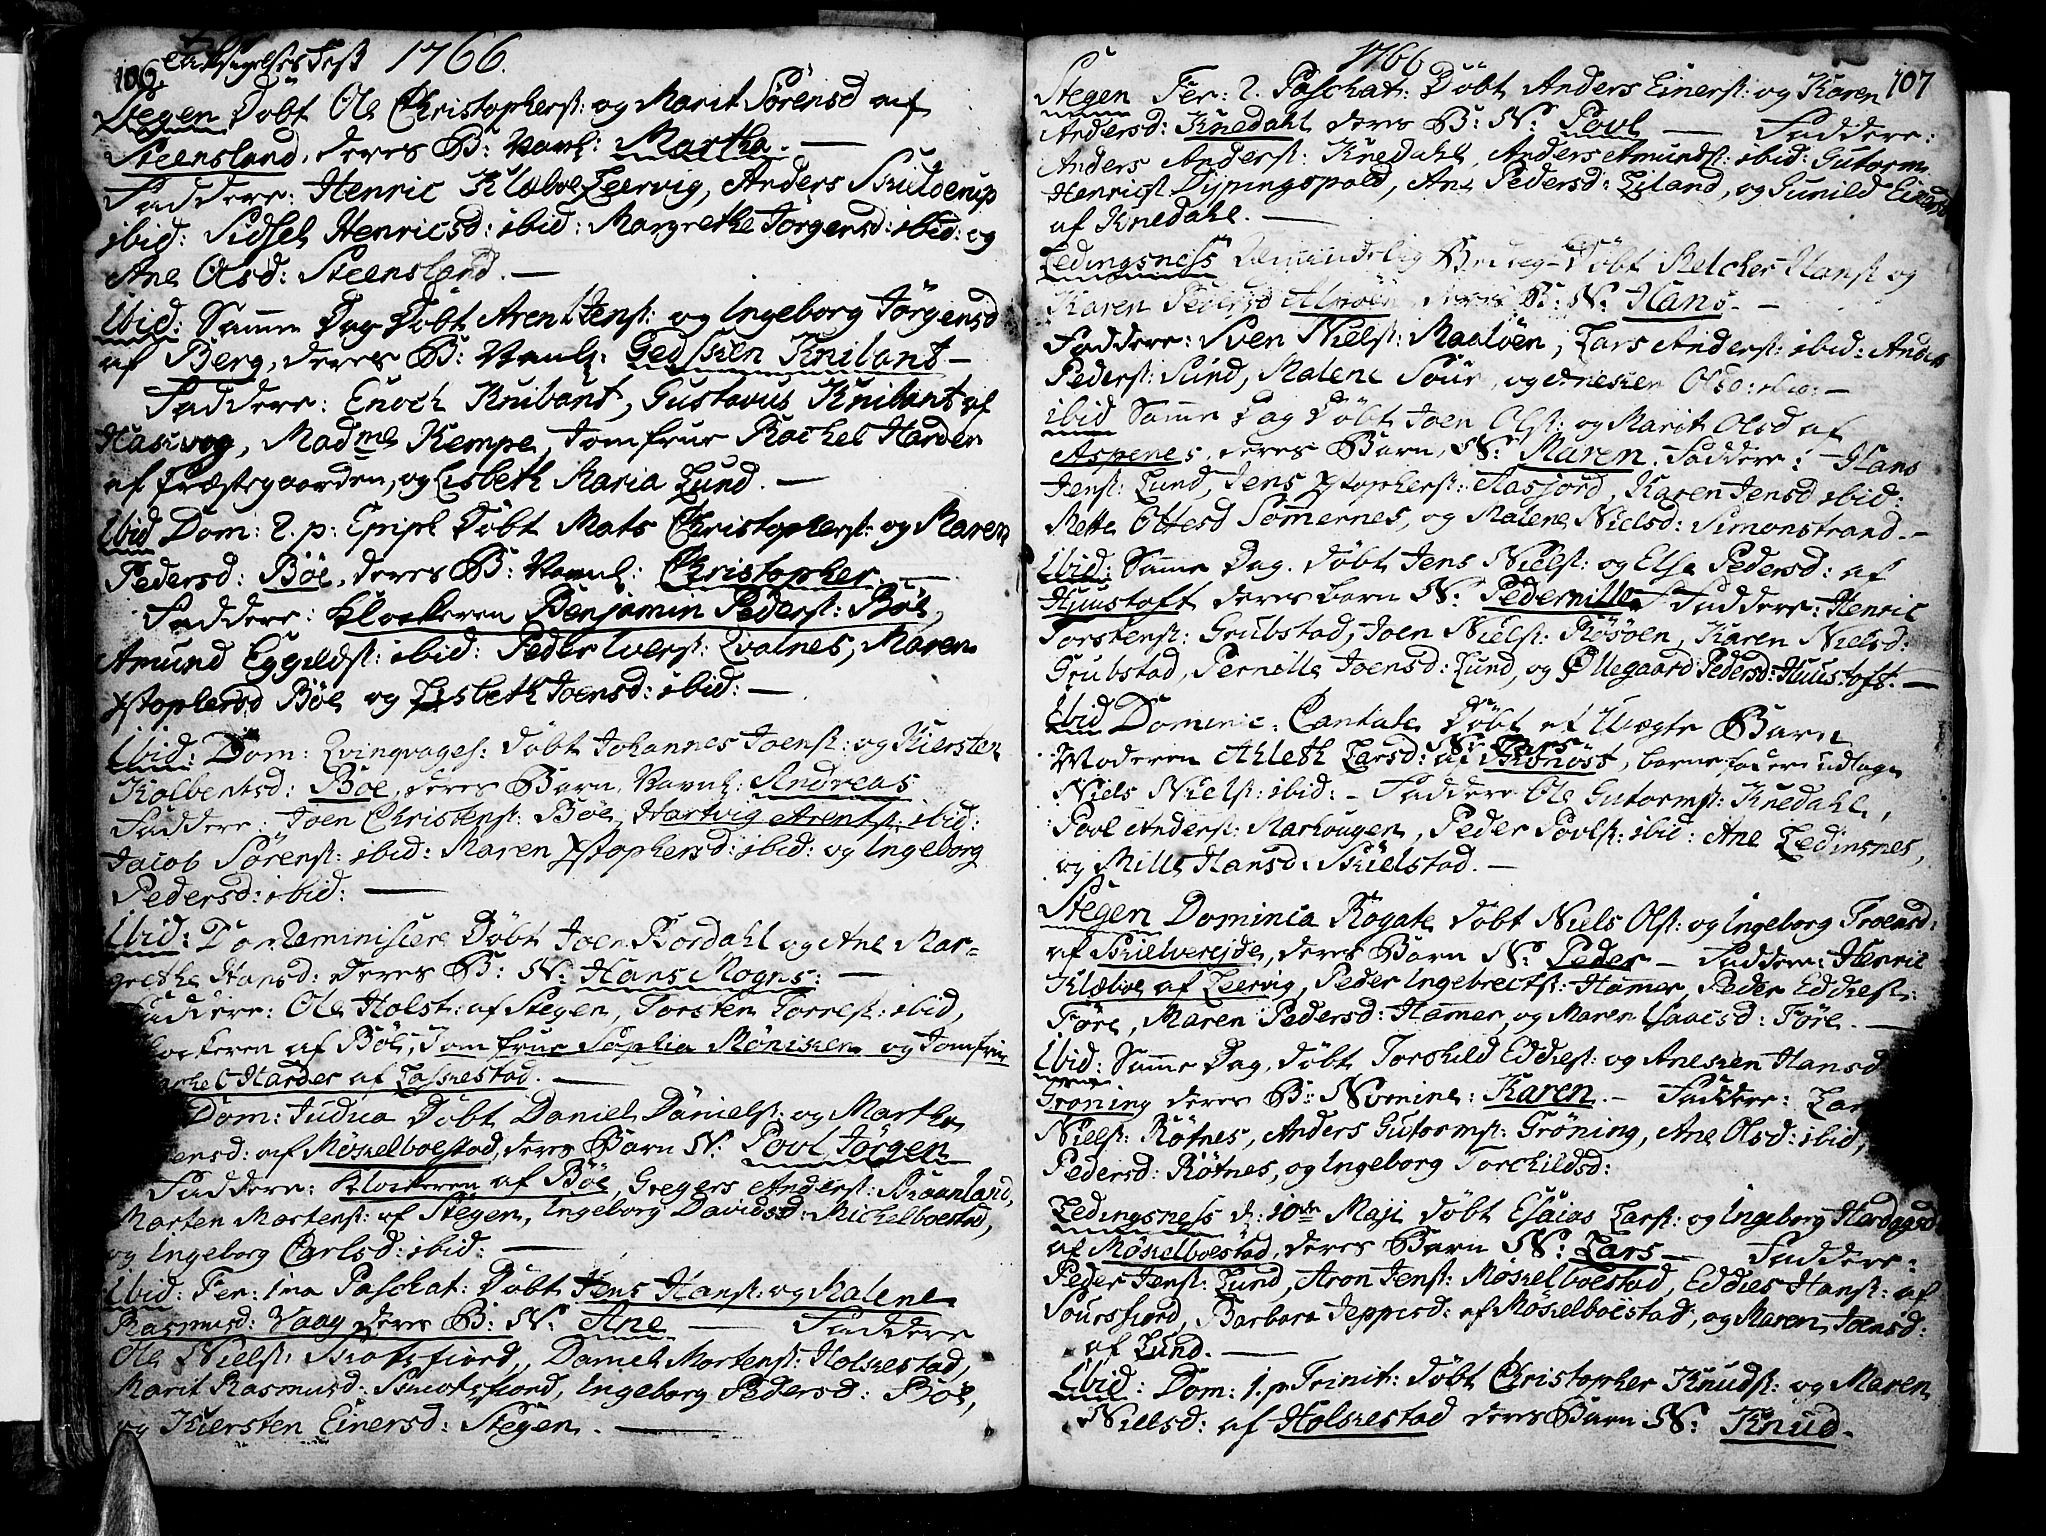 106. 1766.
Stegen Døbt Ole Christopherst: og Marit Sörensd af
Steensland, deres B: Navnl: Martha. —
Faddere: Henric Klæboe Leervig, Anders Skutverup
ibid: Sidsel Henricsd: ibid: Margrethe Jörgensd: ibid: og
Ane Olsd: Steensland. —
Ibid: Samme Dag Döbt Arent Jenst: og Ingeborg Jörgensd
af Berg, deres B: Navnl: Gedsken Knibant —
Faddere: Enoch Knibant, Gustavus Knibant af
Hasvog, Madme Kempe, Jomfrue Rachel Harder
af Præstegaarden, og Lisbeth Maria Lund. —
Ibid Dom: 2. p: Epiph Döbt Mats Christopherst: og Maren
Pedersd: Böe, deres B: Navnl: Christopher. —
Faddere: Klockeren Benjamin Pederst: Böe,
Amund Eggildst: ibid: Peder Iverst: Qvalnes, Maren
Xstophersd Böe og Lisbeth Joensd: ibid: —
Ibid: Dom: Qvinqvages: döbt Johannes Joenst: og Kiersten
Kolbentsd: Böe, deres Barn Navnl: Andreas
Faddere: Joen Christenst: Böe, Hartvig Arentst: ibid:
Jacob Sörenst: ibid: Maren Xstophersd: ibid: og Ingeborg
Pedersd: ibid: —
Ibid: Dom Reminiscere Döbt Joen Rordahl og Ane Mar-
grethe Hansd: deres B: N: Hans Mogns: —
Faddere: Ole Holst: af Stegen, Torsten Torrest: ibid,
Klockeren af Böe, Jomfrue Sophia Mönichen og Jomfrue
Rachel Harder af Laskestad. —
Dom: Judica Döbt Daniel Danielst: og Martha
af Möskelboestad, deres Barn N: Povl Jörgen
Faddere: Klockeren af Böe, Gregers Anderst: Braanland,
Morten Mortenst: af Stegen, Ingeborg Davidsd: Michelboestad,
og Ingeborg Carlsd: ibid: —
Ibid: Fer: 1ma Paschat: Döbt Jens Hanst: og Malene
Rasmusd: Vaag deres B: N: Ane — Faddere
Ole Nielst: Skotsfiord, Daniel Mortenst: Holkestad,
Marit Rasmusd: Skotsfiord, Ingeborg Pedersd: Böe,
og Kiersten Einersd: Stegen. —
1766 107
Stegen Fer: 2. Paschat: Döbt Anders Einerst: og Karen
Andersd: Knedahl deres B: N: Povl — Faddere:
Anders Anderst: Knedahl, Anders Amundst: ibid: Gutorm
Henricst Dypingspold, Ane Pedersd: Eiland, og Gunild Einersd
af Knedahl. —
Ledingsness Almindelig Bededag Döbt Melcher Hanst og
Karen Pedersd deres B: N: Hans. —
Faddere: Sven Nielst: Maalöen, Lars Anderst: ibid: Anders
Pederst: Sund, Malene Söur, og Anesken Olsd: ibid: —
ibid Samme Dag Döbt Joen Olst: og Marit Olsd af
Aspenes, deres Barn, N: Maren. Faddere: Hans
Jenst: Lund, Jens Xstopherst: Aasjord, Karen Jensd ibid:
Mette Ottesd Sommernes, og Malene Nielsd: Simonstrand. —
Ibid: Samme Dag. döbt Jens Nielst: og Else Pedersd: af
Huustoft deres barn N: Pedernille. Faddere: Henric
Torstenst: Grubstad, Joen Nielst: Rösöen, Karen Nielsd:
Grubstad, Pernille Joensd: Lund, og Øllegaard Pedersd: Huustoft. —
Ibid Dominic: Cantate Döbt et Uægte Barn
N: Lars
Moderen Ahleth Larsd: af Brönöst, barnefader udlagt
Niels Nielst: ibid: – Faddere Ole Gutormst: Knedahl,
Povl Anderst: Markougen, Peder Povlst: ibid: Ane Ledinsnes,
og Mille Hansd: Skielstad. —
Stegen Dominica Rogate döbt Niels Olst: og Ingeborg Troensd:
af Skielvereide, deres Barn N: Peder — Faddere: Henric
Klæboe af Leervig, Peder Ingebrectst: Hamer, Peder Eddiest:
Före, Maren Pedersd: Hamer, og Maren Isaacsd: Före. —
Ibid: Samme Dag, döbt Torskild Eddiest: og Anesken Hansd
Gröning deres B: Nomine: Karen. – Faddere: Lars
Nielst: Rötnes, Anders Gutormst: Gröning, Ane Olsd: ibid,
Pedersd: Rötnes, og Ingeborg Torchildsd:
Ledingsness d: 10de Maji döbt Esaias Larst: og Ingeborg
af Möskelboestad, deres Barn N: Lars — Faddere:
Peder Jenst: Lund, Aron Jenst: Möskelboestad, Eddies Hanst: af
Soursfiord, Barbara Jeppesd: af Möskelboestad, og Maren Joensd:
af Lund. —
Ibid: Dom: 1. p Trinit: döbt Christopher Knudst: og Maren
Nielsd: af Holkestad deres Barn N: Knud.